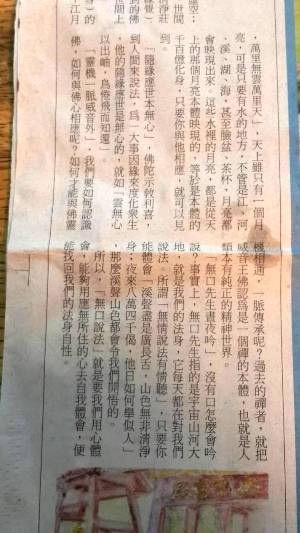 ，萬里無雲萬里天」，天上雖只有一個月
亮，可是只要有水的地方，不管是江、河
、溪、湖、海，甚至臉盆、茶杯，月亮都
會映現出來。這些水裡的月亮，都是從天
上的那個月亮本體映現的，等於是本體的
千百億化身，只要你與他相應，就可以見
到。
「隨緣應世本無心」，佛陀示教利喜，
到人間來說法，為一大事因緣來度化眾生
，他的隨緣應世是無心的，就如「雲無心
以出岫，鳥倦飛而知還」。
「靈機一脈威音外」，我們要如何認識
佛，如何與佛心相應呢？如何才能與佛靈
機相通，一脈傳承呢？過去的禪者，就把
威音王佛認為是一個禪的本體，也就是人
類本有純正的精神世界。
「無口先生晝夜吟」，沒有口怎麼會吟
說？事實上，無口先生指的是宇宙山河大
地，就是我們的法身，它每天都在對我們
說法。所謂「無情說法有情聽」，只要你
能體會，溪聲盡是廣長舌，山色無非清淨
身；夜來八萬四千偈，他日如何舉似人」
，那麼溪聲山色都會令我們開悟的。
所以，「無口說法」就是要我們用心體
會，能夠用應無所住的心去自我體會，便
能找回我們的法身自性。
虛空；
清淨莊
世間
世間上
）的
江月